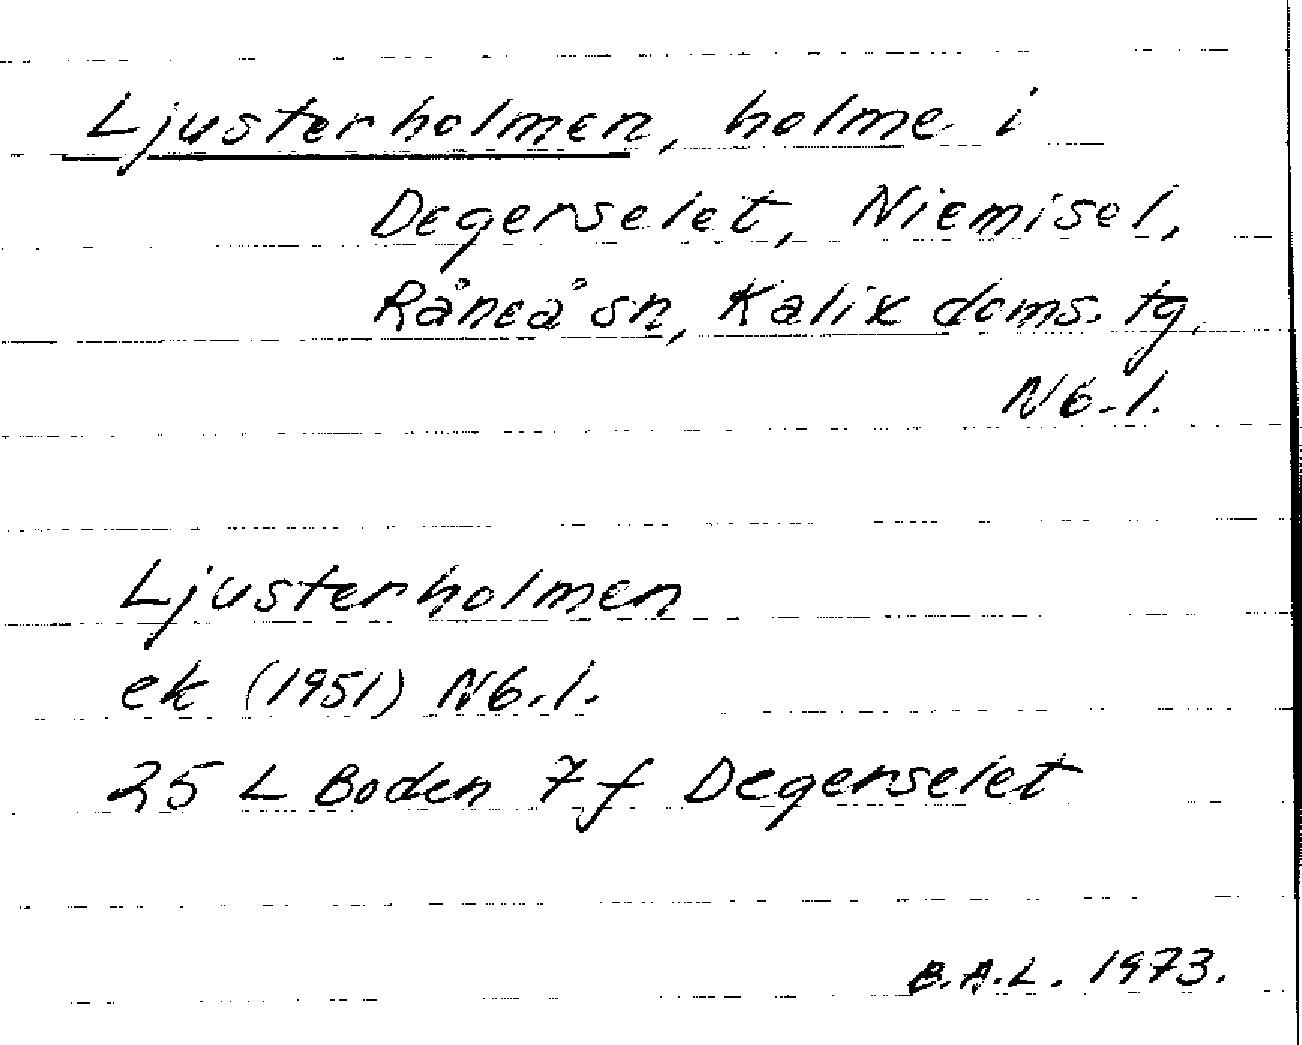 Ljusterholmen, holme i
Degerselet, Niemisel,
Råneå sn, Kalix doms. tg.
Nb. l.
Ljusterholmen
ek (1951) Nb. l.
25 L Boden 7 f Degerselet
B.A.L. 1973.